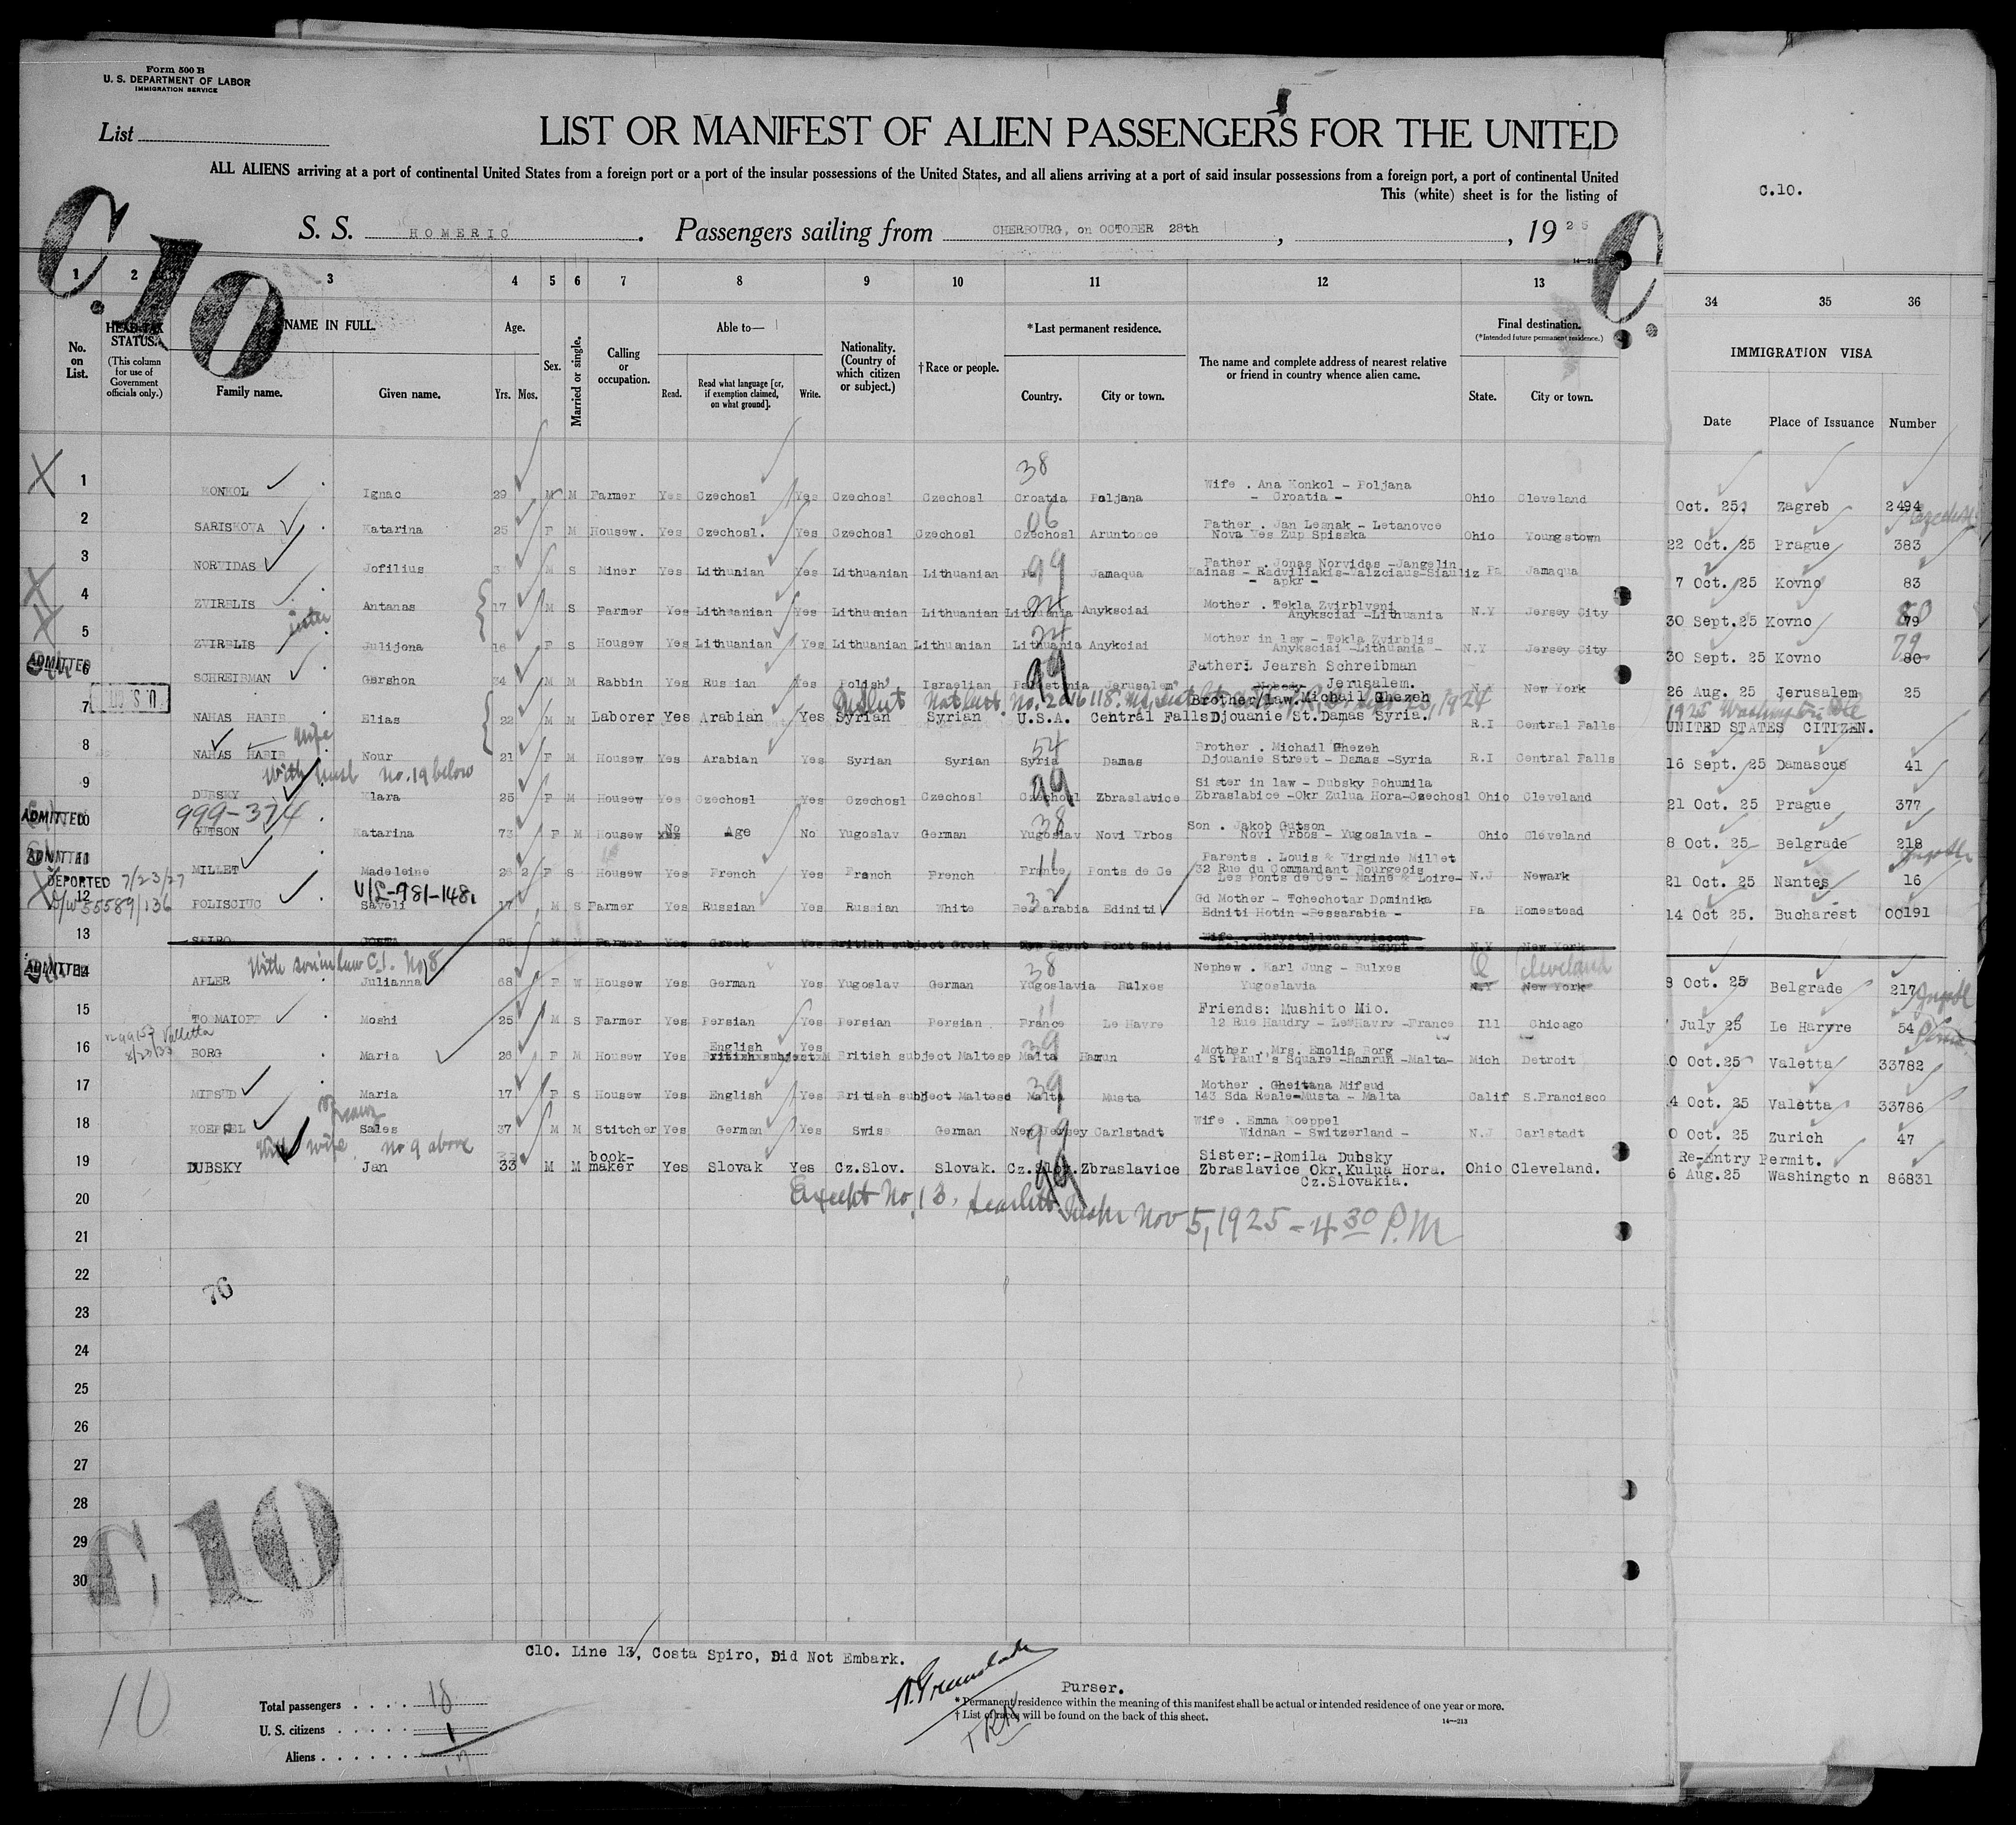 Form 500 B
U. S. DEPARTMENT OF LABOR
IMMIGRATION SERVICE
List
LIST OR MANIFEST OF ALIEN PASSENGERS FOR THE UNITED
ALL ALIENS arriving at a port of continental United States from a foreign port or a port of the insular possessions of the United States, and all aliens arriving at a port of said insular possessions from a foreign port, a port of continental United
This (white) sheet is for the listing of
C.10.
S. S. HOMERIC. Passengers sailing from CHERBOURG, on OCTOBER 28th, , 1925
C.10 C.
14—213
1 2 3 4 5 6 7 8 9 10 11 12 13 34 35 36
No. on List.
HEAD-TAX STATUS. (This column for use of Government officials only.)
NAME IN FULL. Family name. Given name.
Age. Yrs. Mos.
Sex.
Married or single.
Calling or occupation.
Able to— Read. Read what language [or, if exemption claimed, on what ground]. Write.
Nationality. (Country of which citizen or subject.)
†Race or people.
*Last permanent residence. Country. City or town.
The name and complete address of nearest relative or friend in country whence alien came.
Final destination. (*Intended future permanent residence.) State. City or town.
IMMIGRATION VISA Date Place of Issuance Number
38
X 1 KONKOL Ignac 29 M M Farmer Yes Czechosl Yes Czechosl Czechosl Croatia Poljana Wife . Ana Konkol - Poljana - Croatia - Ohio Cleveland Oct. 25 Zagreb 2494
06
2 SARISKOVA Katarina 25 F M Housew. Yes Czechosl. Yes Czechosl Czechosl Czechosl Aruntonce Father . Jan Lesnak - Letanovce Nova Ves Zup Spisska Ohio Youngstown 22 Oct. 25 Prague 383
99
3 NORVIDAS Jofilius M S Miner Yes Lithunian Yes Lithuanian Lithuanian Jamaqua Father . Jonas Norvidas -Jangelin Kainas - Radviliakis-Valzciaus-Siauliz - apkr - Pa Jamaqua 7 Oct. 25 Kovno 83
X 4 ZVIRBLIS Antanas 17 M S Farmer Yes Lithuanian Yes Lithuanian Lithuanian Lithuania Anyksciai Mother . Tekla Zvirblveni Anyksciai -Lithuania N.Y Jersey City 30 Sept.25 Kovno 79 80
sister
X 5 ZVIRBLIS Julijona 16 F S Housew Yes Lithuanian Yes Lithuanian Lithuanian Lithuania Anykciai Mother in law - Tekla Zvirblis Anyksciai -Lithuania - N.Y Jersey City 30 Sept. 25 Kovno 80 79
ADMITTED 6 SCHREIBMAN Gershon 34 M M Rabbin Yes Russian Yes Polish Israelian Palestania Jerusalem Father: Jearsh Schreibman Jerusalem. N.Y New York 26 Aug. 25 Jerusalem 25
99
U.S.CIT. 7 NAHAS HABIB Elias 22 M M Laborer Yes Arabian Yes Syrian Syrian U.S.A. Central Falls Brother/law. Michail Ghezeh Djouanie St.Damas Syria. R.I Central Falls UNITED STATES CITIZEN.
wife
54
8 NAHAS HABIB Nour 21 F M Housew Yes Arabian Yes Syrian Syrian Syria Damas Brother . Michail Ghezeh Djouanie Street - Damas -Syria R.I Central Falls 16 Sept. 25 Damascus 41
With husb No. 19 below
99
9 DUBSKY Klara 25 F M Housew Yes Czechosl Yes Czechosl Czechosl Czechosl Zbraslavice Sister in law - Dubsky Bohumila Zbraslabice -Okr Zulua Hora-Czechosl Ohio Cleveland 21 Oct. 25 Prague 377
999-374
38
ADMITTED 10 GUTSON Katarina 73 F M Housew No Age No Yugoslav German Yugoslav Novi Vrbos Son . Jakob Gutson Novi Vrbos - Yugoslavia - Ohio Cleveland 8 Oct. 25 Belgrade 218
ADMITTED 11 MILLET Madeleine 26 2 F S Housew Yes French Yes French French France Ponts de Ce Parents . Louis & Virginie Millet 32 Rue du Commandant Bourgeois Les Ponts de Ce - Maine & Loire- N.J Newark 21 Oct. 25 Nantes 16
DEPORTED 7/23/27
V/L-981-148.
O/W 55589/136
12 POLISCIUC Saveli 17 M S Farmer Yes Russian Yes Russian White Bessarabia Ediniti Gd Mother - Tchechotar Dominika Edniti Hotin -Bessarabia - Pa Homestead 14 Oct 25. Bucharest 00191
13 SPIRO COSTA 25 M M Farmer Yes Greek Yes British subject Greek Egypt Port Said Wife - Chrystallou Kyriacou N.Y New York
With son in law C.1. No 8
38
ADMITTED 14 ADLER Julianna 68 F W Housew Yes German Yes Yugoslav German Yugoslavia Bulxes Nephew . Karl Jung - Bulxes Yugoslavia O Cleveland N.Y New York 8 Oct. 25 Belgrade 217
15 TOMAIOFF Moshi 25 M S Farmer Yes Persian Yes Persian Persian France Le Havre Friends: Mushito Mio. 12 Rue Haudry - Le Havre -France Ill Chicago July 25 Le Haryre 54
Valletta
16 BORG Maria 26 F M Housew Yes English Yes British subject Maltese Malta Hamrun Mother . Mrs. Emolia Borg 4 St Paul's Square -Hamrun -Malta- Mich Detroit 0 Oct.25 Valetta 33782
39
17 MIFSUD Maria 17 F S Housew Yes English Yes British subject Maltese Malta Musta Mother . Gheitana Mifsud 143 Sda Reale-Musta - Malta Calif S.Francisco 4 Oct. 25 Valetta 33786
18 KOEPPEL Sales 37 M M Stitcher Yes German Yes Swiss German New Jersey Carlstadt Wife . Emma Koeppel Widnan - Switzerland - N.J Carlstadt 0 Oct. 25 Zurich 47
With wife No 9 above
99
19 DUBSKY Jan 33 M M book-maker Yes Slovak Yes Cz.Slov. Slovak. Cz.Slov. Zbraslavice Sister:-Romila Dubsky Zbraslavice Okr.Kulua Hora. Cz.Slovakia. Ohio Cleveland. Re-Entry Permit. 6 Aug.25 Washington 86831
20 Except No. 13. Nov 5, 1925 - 4 30 P.M
21
22
76
23
24
25
26
27
28
C 10
29
30
C10. Line 13, Costa Spiro, Did Not Embark.
10
Purser.
Total passengers . . . . 18
U. S. citizens . . . . . 1
Aliens . . . . . . 17
* Permanent residence within the meaning of this manifest shall be actual or intended residence of one year or more.
† List of races will be found on the back of this sheet.
14—213